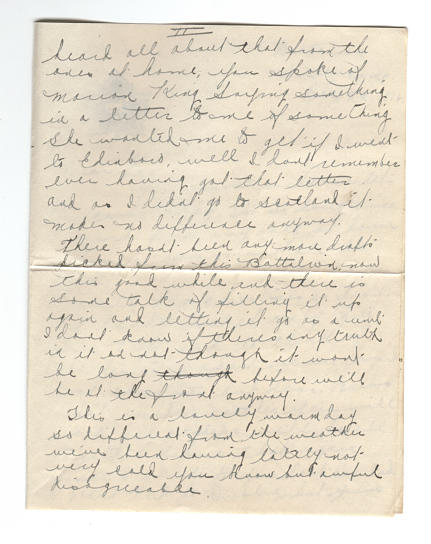 II
heard all about that from the
ones at home, you spoke of
Marion King saying something
in a letter to me of something
she wanted me to get if I went
to Edinboro, well I dont remember
ever having got that letter
and as I didnt go to Scotland it
makes no difference anyway.
There hasnt been any more drafts
picked from this Battalion now
this good while and there is
some talk of filling it up
again and letting it go as a unit
I dont know if theres any truth
in it or not though it wont
be long though before we'll
be at the front anyway.
This is a lovely warm day
so different from the weather
we've been having lately not
very cold you know but awful
disagreeable.